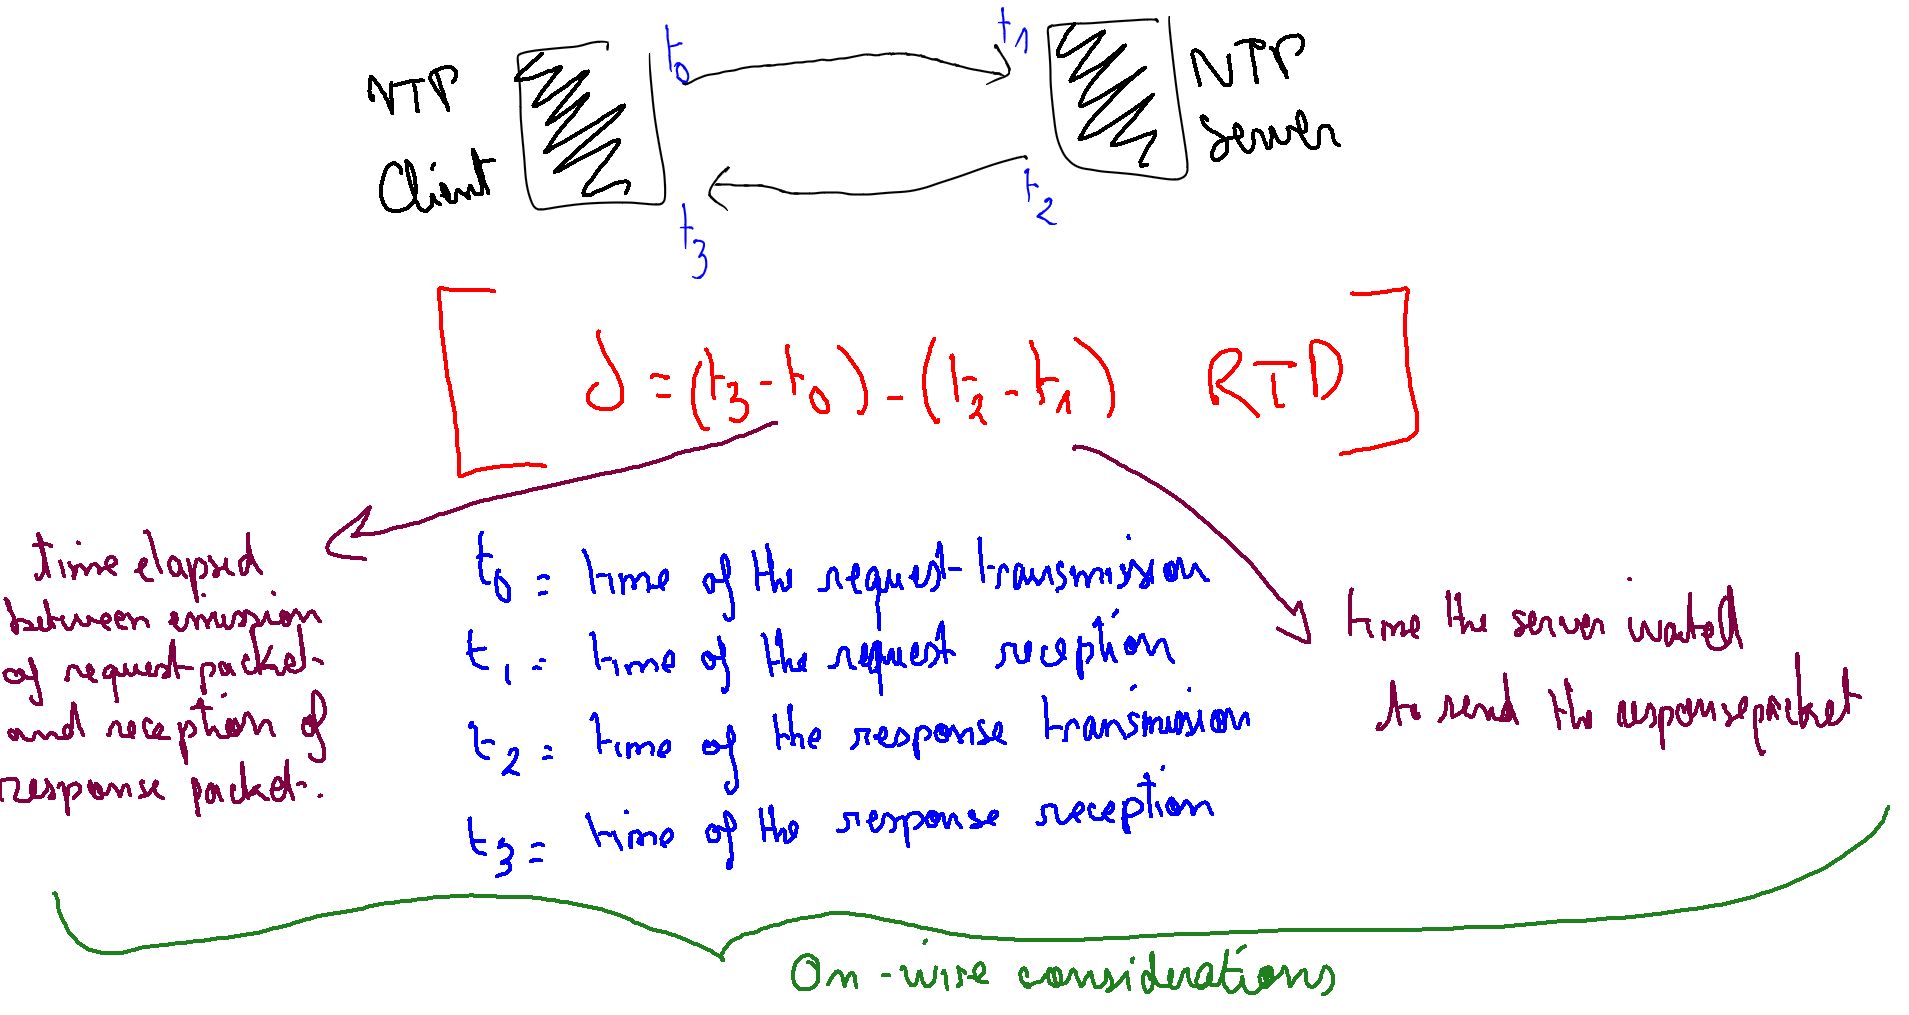 NTP
Client
t0
t1
NTP
Server
t3
t2
δ = (t3 - t0) - (t2 - t1) RTD
time elapsed
between emission
of request packet
and reception of
response packet.
t0 = time of the request transmission
t1 = time of the request reception
t2 = time of the response transmission
t3 = time of the response reception
time the server waited
to send the response packet
On-wire considerations